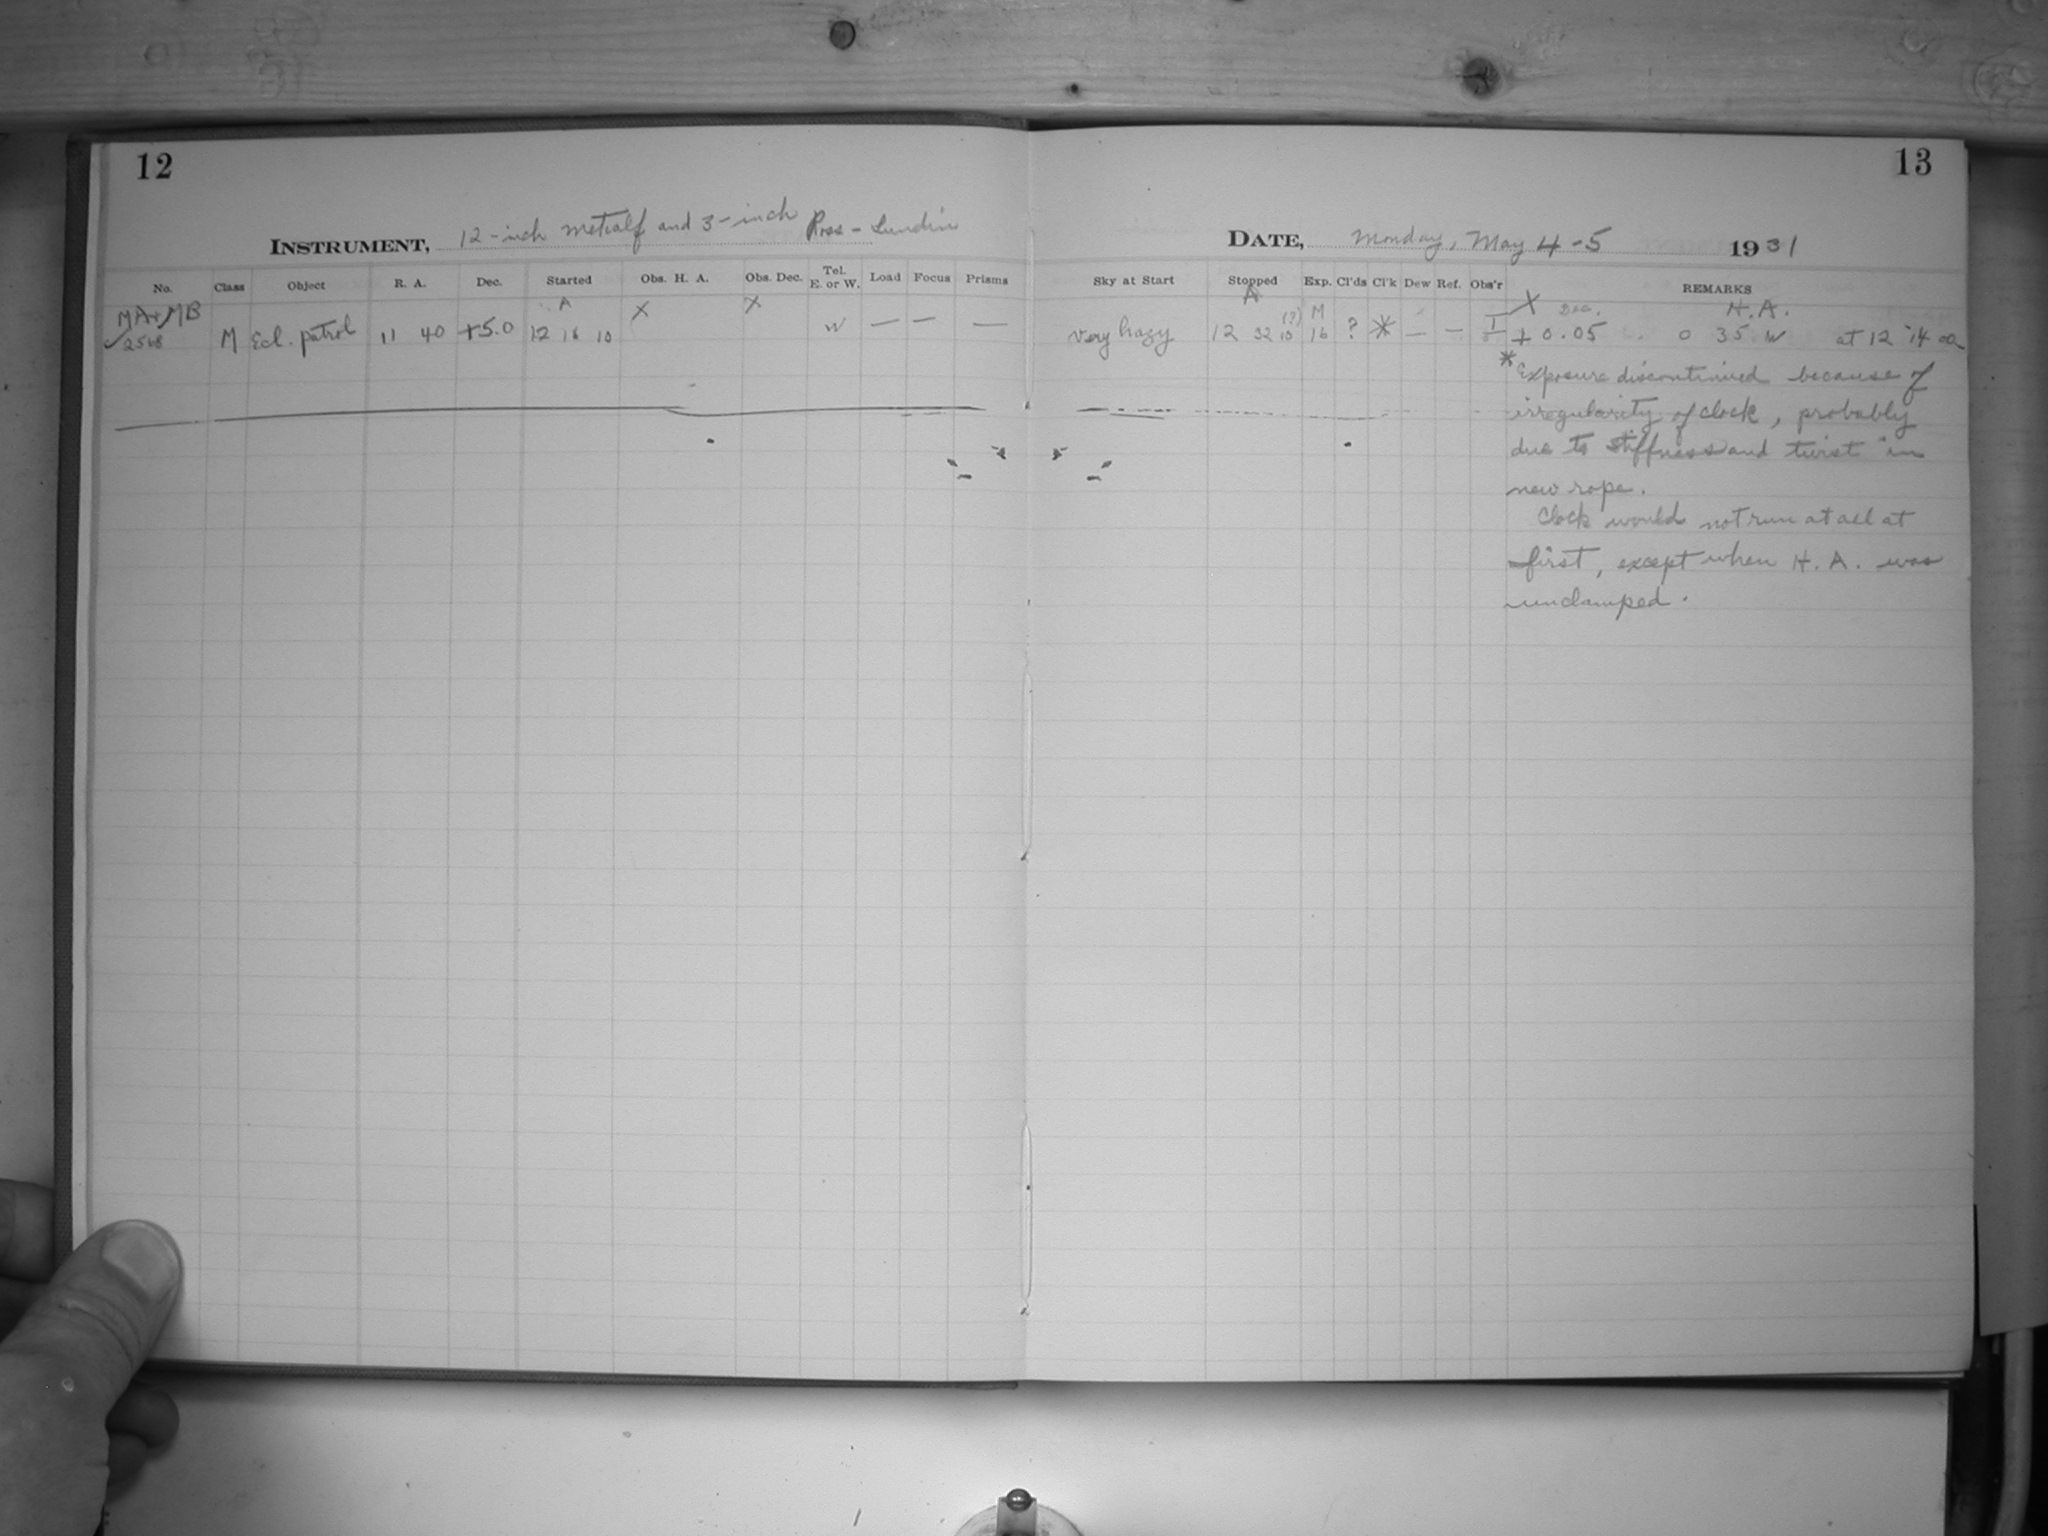 12
13
INSTRUMENT, 12-inch Metcalf and 3-inch Ross-Lundin
DATE, Monday, May 4-5 1931
No. Class Object R. A. Dec. Started Obs. H. A. Obs. Dec. Tel. E. or W. Load Focus Prisms Sky at Start Stopped Exp. Cl'ds Cl'k Dew Ref. Obs'r REMARKS
MA+MB A X X A (?) M X Dec. H.A.
✓2568 M Ecl. patrol 11 40 +5.0 12 16 10 W — — — Very hazy 12 32 10 16 ? * — — + 0.05 0 35 W at 12 14 00
* Exposure discontinued because of
irregularity of clock, probably
due to stiffness and twist in
new rope.
Clock would not run at all at
first, except when H. A. was
unclamped.